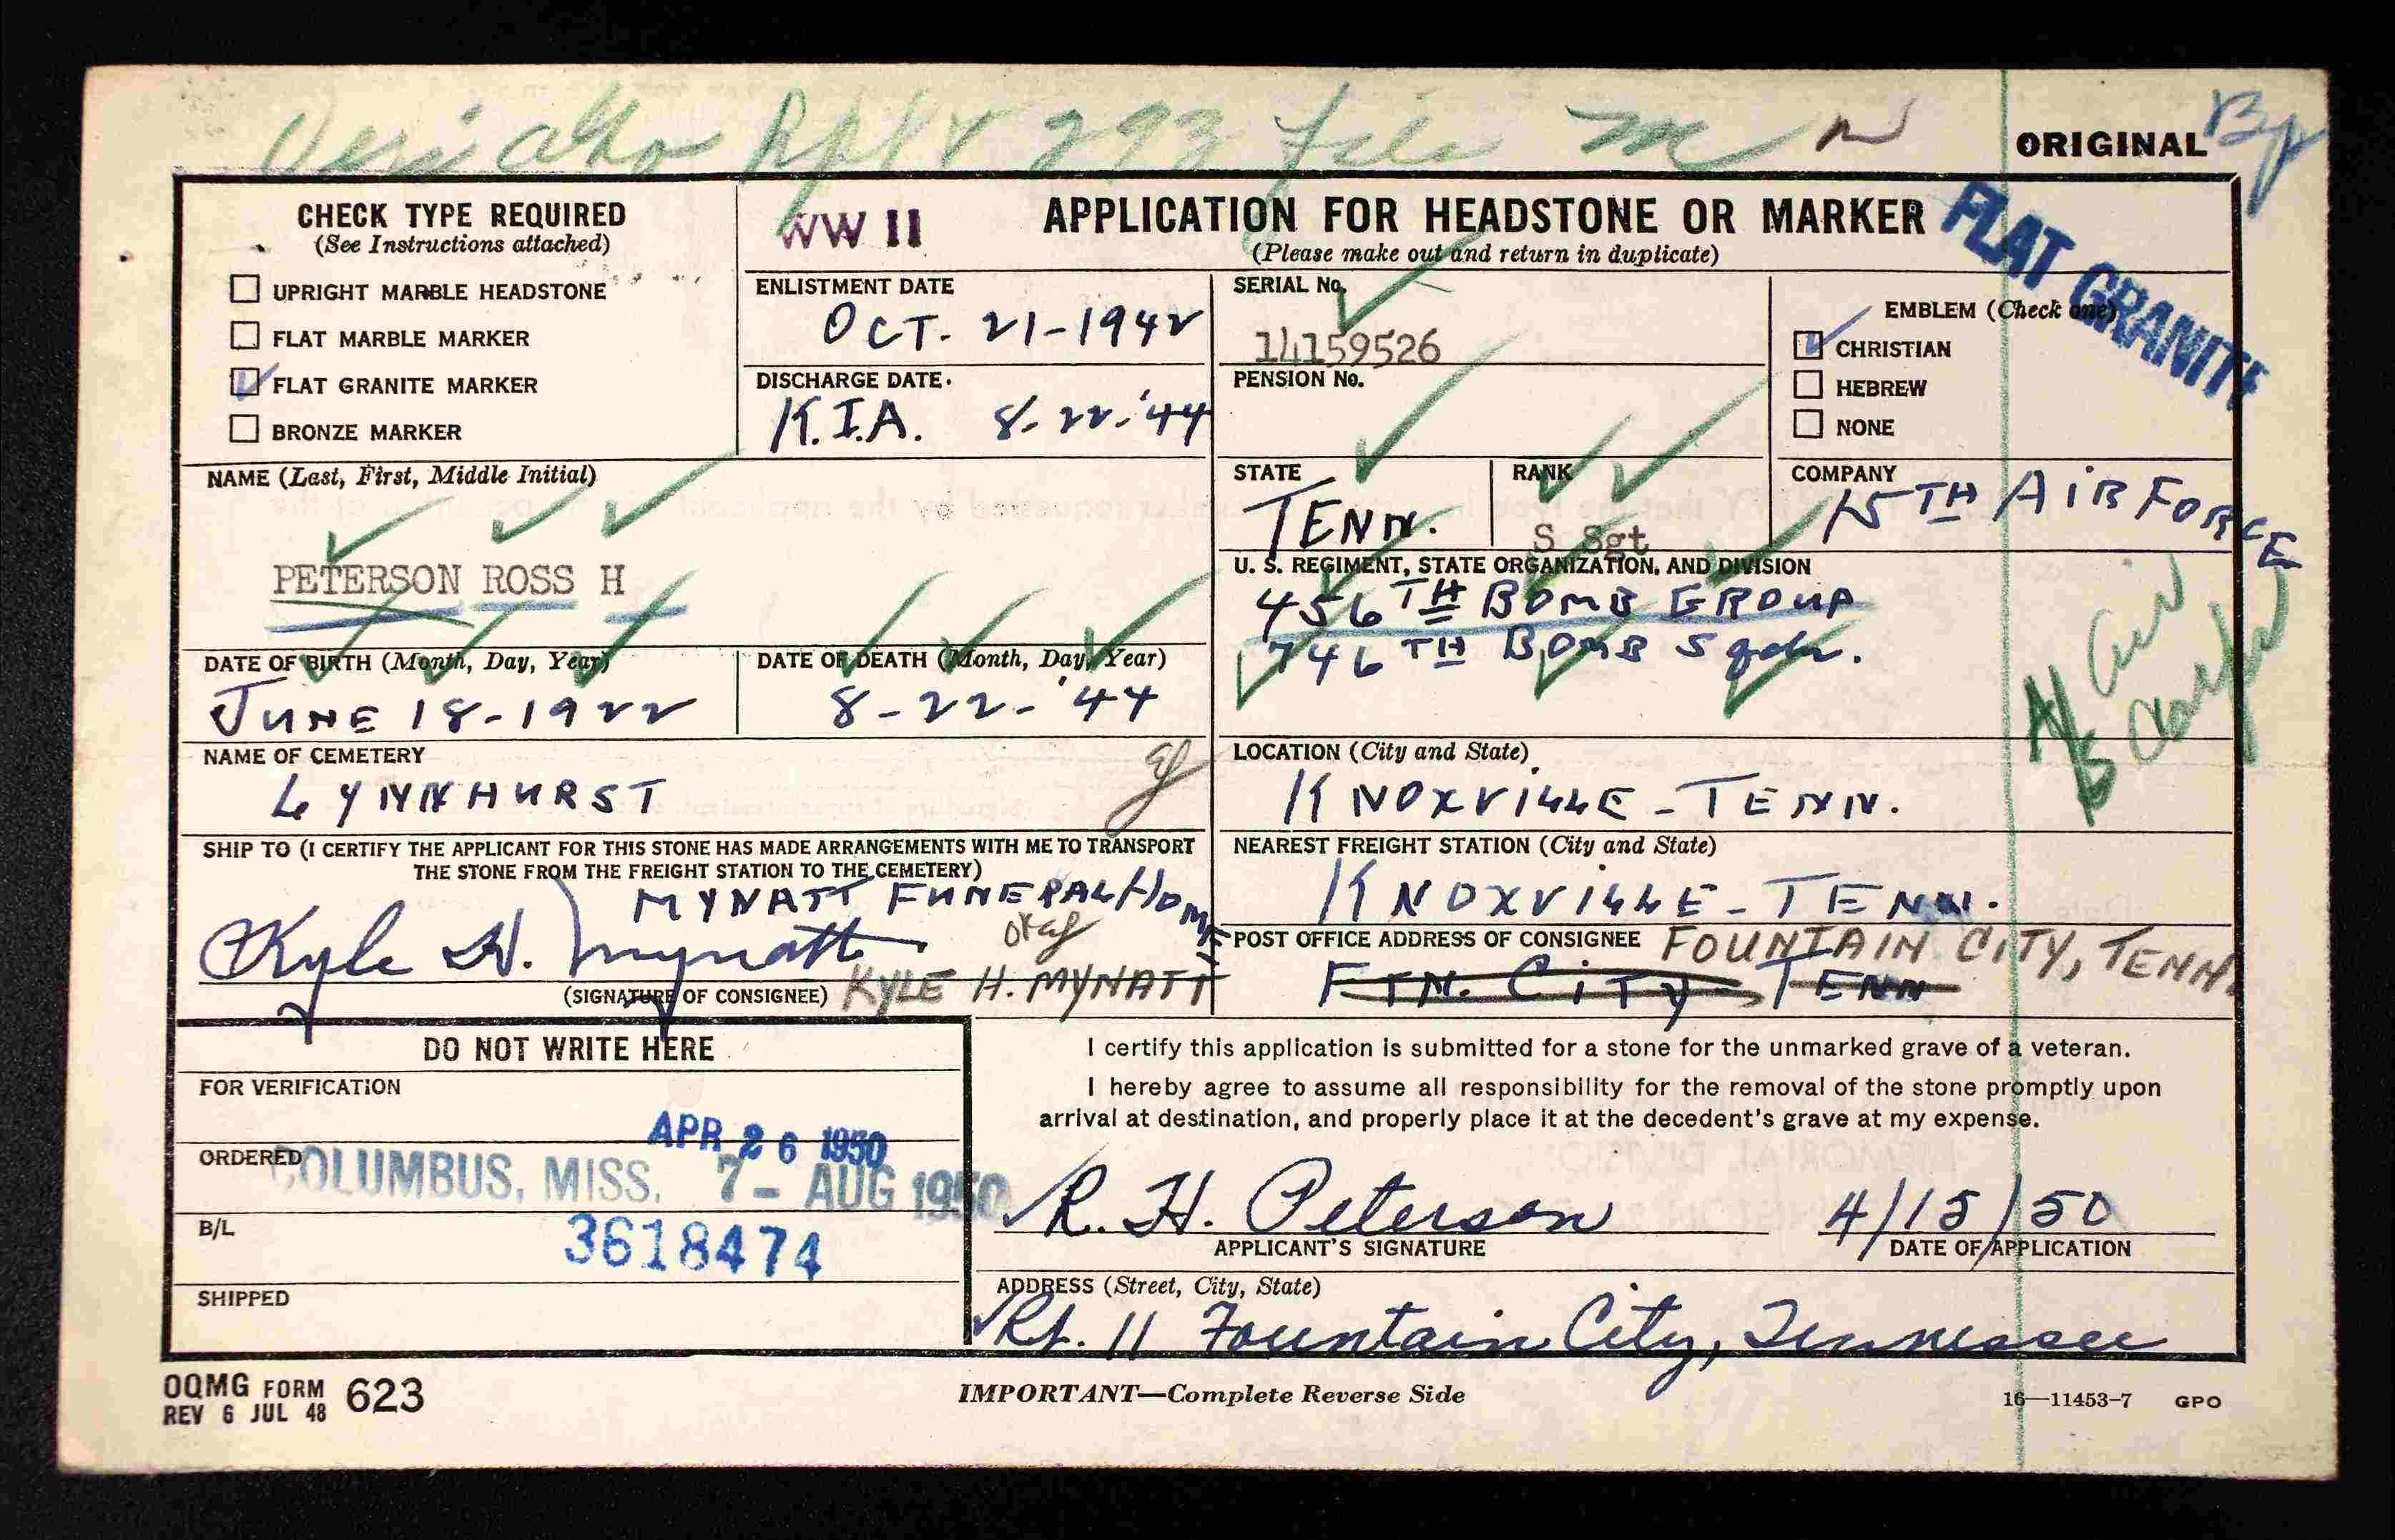 293 file
ORIGINAL
CHECK TYPE REQUIRED
(See Instructions attached)
UPRIGHT MARBLE HEADSTONE
FLAT MARBLE MARKER
FLAT GRANITE MARKER
BRONZE MARKER
WW II
APPLICATION FOR HEADSTONE OR MARKER
(Please make out and return in duplicate)
FLAT GRANITE
ENLISTMENT DATE
OCT. 21-1942
DISCHARGE DATE.
K.I.A. 8-22-'44
SERIAL No.
14159526
PENSION No.
EMBLEM (Check one)
CHRISTIAN
HEBREW
NONE
NAME (Last, First, Middle Initial)
PETERSON ROSS H
STATE
TENN.
RANK
S Sgt
COMPANY
15TH AIR FORCE
U. S. REGIMENT, STATE ORGANIZATION, AND DIVISION
456TH BOMB GROUP
746TH BOMB Sqdn.
DATE OF BIRTH (Month, Day, Year)
JUNE 18-1922
DATE OF DEATH (Month, Day, Year)
8-22-'44
NAME OF CEMETERY
LYNNHURST
LOCATION (City and State)
KNOXVILLE-TENN.
SHIP TO (I CERTIFY THE APPLICANT FOR THIS STONE HAS MADE ARRANGEMENTS WITH ME TO TRANSPORT
THE STONE FROM THE FREIGHT STATION TO THE CEMETERY)
MYNATT FUNERAL HOME
Kyle H. Mynatt
(SIGNATURE OF CONSIGNEE) KYLE H. MYNATT
NEAREST FREIGHT STATION (City and State)
KNOXVILLE-TENN.
POST OFFICE ADDRESS OF CONSIGNEE FOUNTAIN CITY, TENN.
FTN. CITY-TENN
DO NOT WRITE HERE
FOR VERIFICATION
APR 26 1950
ORDERED
COLUMBUS, MISS. 7- AUG 1950
B/L
3618474
SHIPPED
I certify this application is submitted for a stone for the unmarked grave of a veteran.
I hereby agree to assume all responsibility for the removal of the stone promptly upon
arrival at destination, and properly place it at the decedent's grave at my expense.
R. H. Peterson
4/15/50
APPLICANT'S SIGNATURE
DATE OF APPLICATION
ADDRESS (Street, City, State)
Rt. 11 Fountain City, Tennessee
OQMG FORM 623
REV 6 JUL 48
IMPORTANT—Complete Reverse Side
16—11453-7 GPO